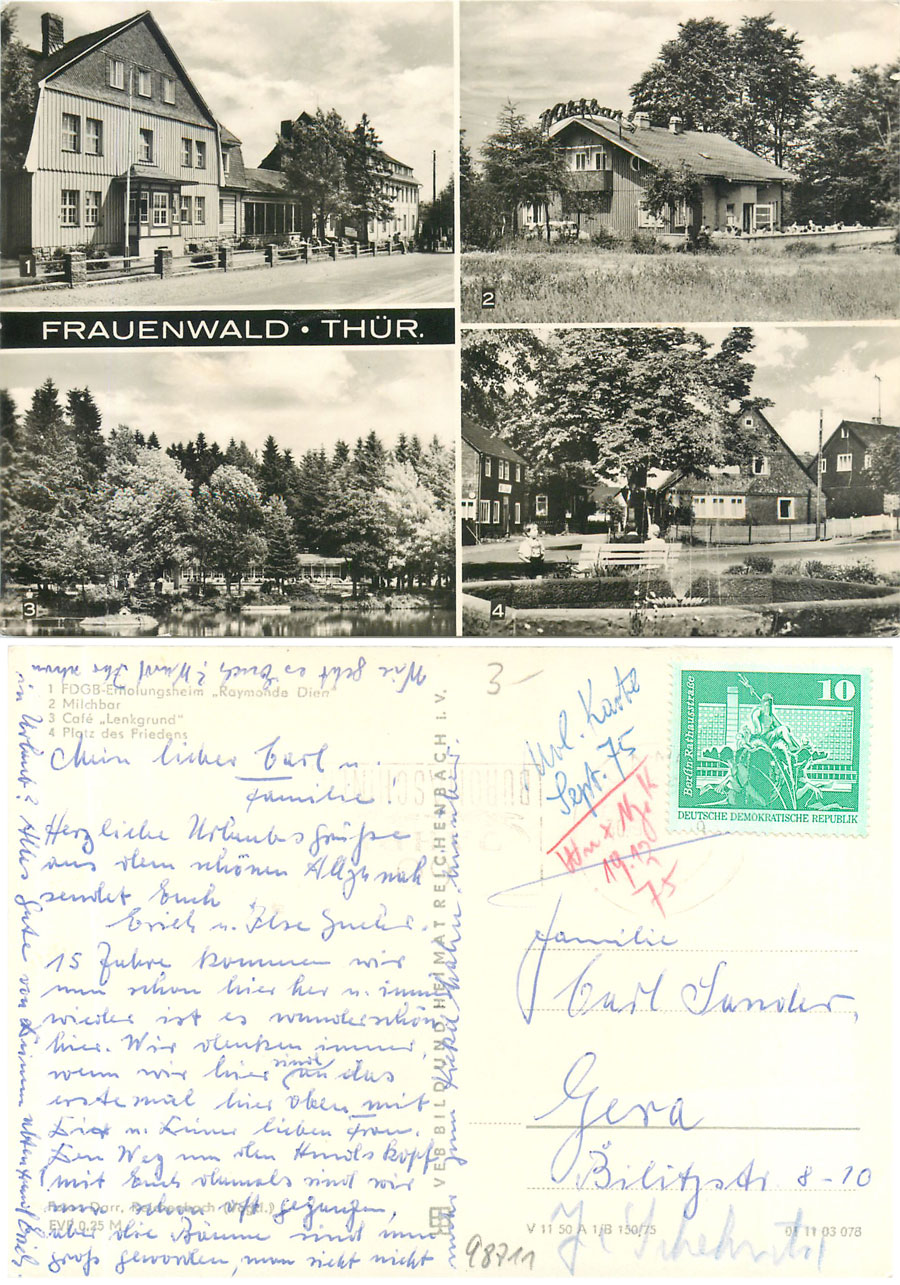 1
2
FRAUENWALD · THÜR.
3
4
Wie geht es Euch? Ward Ihr schon
1 FDGB-Erholungsheim „Raymonde Dien"
2 Milchbar
3 Café „Lenkgrund"
4 Platz des Friedens
Mein lieber Carl u.
Familie.
Herzliche Urlaubsgrüße
aus dem schönen Allzunah
sendet Euch
Erich u. Ilse
15 Jahre kommen wir
nun schon hier her u. immer
wieder ist es wunderschön
hier. Wir denken immer,
wenn wir hier sind an das
erste mal hier oben mit
Dir u. Deiner lieben Frau.
Den Weg um den Hundskopf
mit Euch damals sind wir
nun schon oft gegangen,
aber die Bäume sind nun
groß geworden, man sieht nicht
mehr zum
in Urlaub? Alles Gute von Deinem alten Freund Erich.
Foto: Darr, Reichenbach (Vogtl.)
EVP 0,25 M
VEB BILD UND HEIMAT REICHENBACH i. V.
3-
Url. Karte
Sept. 75
19.12
75
10
Berlin·Rathausstraße
DEUTSCHE DEMOKRATISCHE REPUBLIK
Familie
Carl Sander,
Gera
Bilitzstr. 8-10
V 11 50 A 1/B 150/75
01 11 03 078
98711